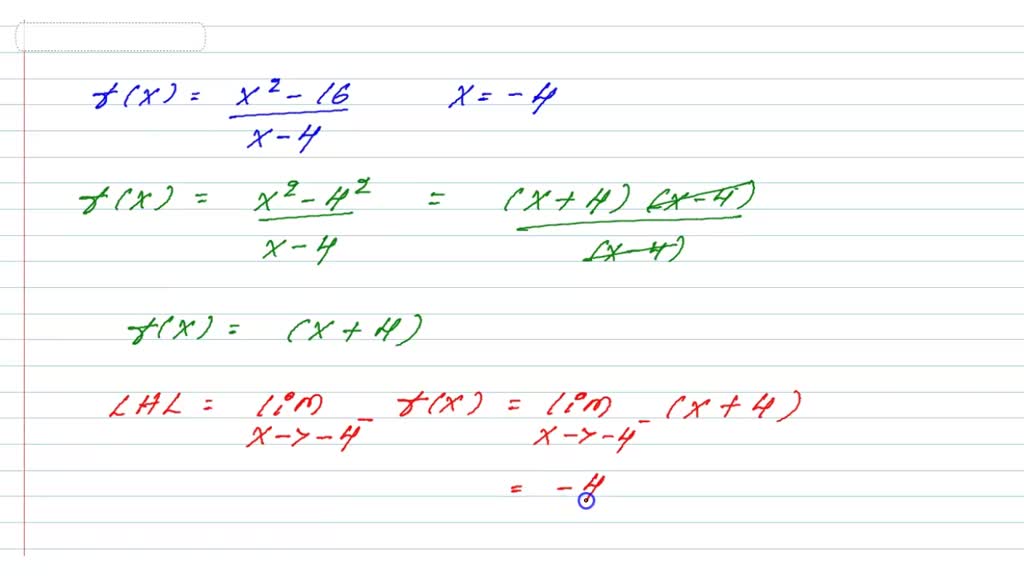 f(x) = x² - 16 / x - 4   x = -4
f(x) = x² - 4² / x - 4 = (x + 4) (x - 4) / (x - 4)
f(x) = (x + 4)
LHL = lim x -> -4⁻ f(x) = lim x -> -4⁻ (x + 4)
= -4